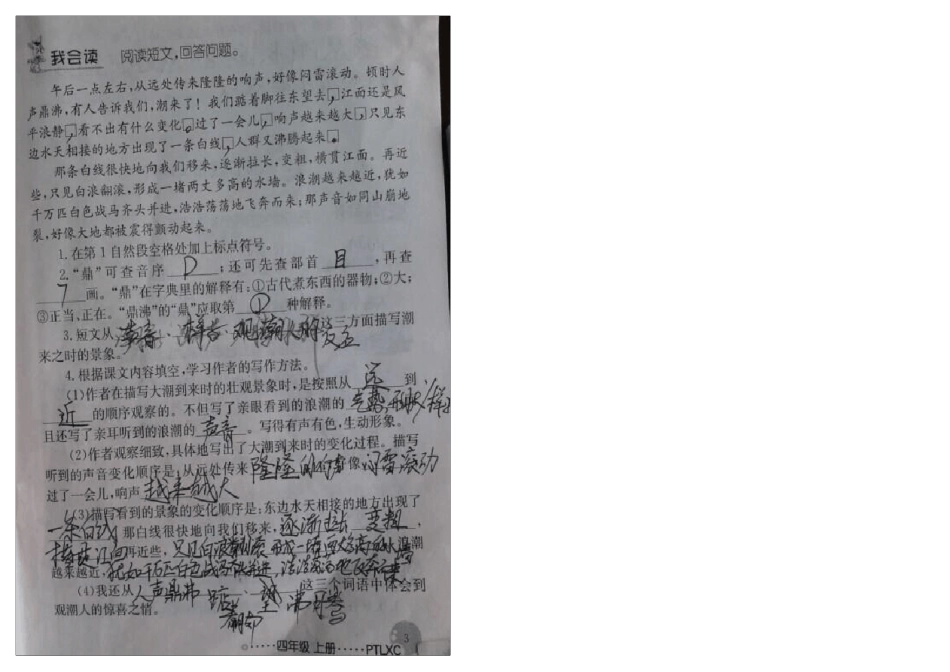 我会读 阅读短文,回答问题。
午后一点左右,从远处传来隆隆的响声,好像闷雷滚动。顿时人
声鼎沸,有人告诉我们,潮来了!我们踮着脚往东望去,江面还是风
平浪静,看不出有什么变化。过了一会儿,响声越来越大,只见东
边水天相接的地方出现了一条白线,人群又沸腾起来。
那条白线很快地向我们移来,逐渐拉长,变粗,横贯江面。再近
些,只见白浪翻滚,形成一堵两丈多高的水墙。浪潮越来越近,犹如
千万匹白色战马齐头并进,浩浩荡荡地飞奔而来;那声音如同山崩地
裂,好像大地都被震得颤动起来。
1.在第1自然段空格处加上标点符号。
2.“鼎”可查音序 D ;还可先查部首 目 ,再查
7 画。“鼎”在字典里的解释有:①古代煮东西的器物;②大;
③正当、正在。“鼎沸”的“鼎”应取第 ① 种解释。
3.短文从 声音、样子、观潮人的反应 这三方面描写潮
来之时的景象。
4.根据课文内容填空,学习作者的写作方法。
(1)作者在描写大潮到来时的壮观景象时,是按照从 远 到
近 的顺序观察的。不但写了亲眼看到的浪潮的 气势,形状,样子
且还写了亲耳听到的浪潮的 声音 。写得有声有色,生动形象。
(2)作者观察细致,具体地写出了大潮到来时的变化过程。描写
听到的声音变化顺序是:从远处传来 隆隆的响声 像 闷雷滚动
过了一会儿,响声 越来越大
(3)描写看到的景象的变化顺序是:东边水天相接的地方出现了
一条白线,那白线很快地向我们移来, 逐渐拉长 变粗 ,
横贯江面 再近些, 只见白浪翻滚 形成一堵两丈多高的水墙 浪潮
越来越近, 犹如千万匹白色战马齐头并进,浩浩荡荡地飞奔而来
(4)我还从 人声鼎沸 踮 、 沸腾 这三个词语中体会到
观潮人的惊喜之情。
四年级 上册 PTLXC 3